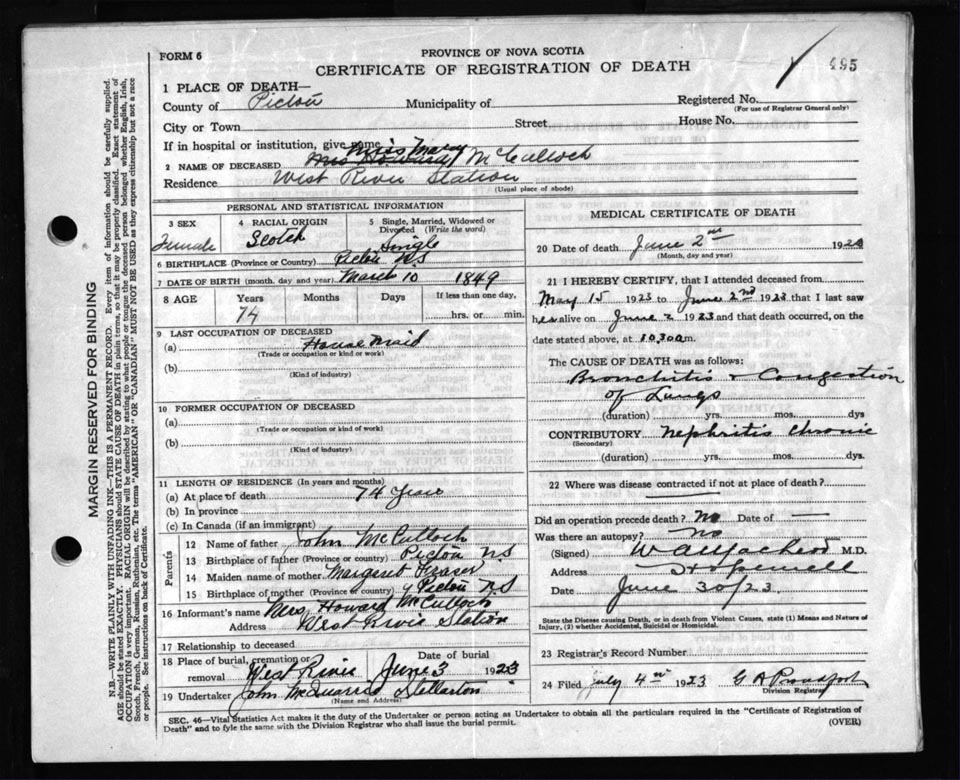 FORM 6
PROVINCE OF NOVA SCOTIA
495
CERTIFICATE OF REGISTRATION OF DEATH
1 PLACE OF DEATH—
County of Pictou Municipality of Registered No.
(For use of Registrar General only)
City or Town Street House No.
If in hospital or institution, give name
Miss Mary
2 NAME OF DECEASED Mrs Howard McCulloch
Residence West River Station
(Usual place of abode)
PERSONAL AND STATISTICAL INFORMATION
3 SEX 4 RACIAL ORIGIN 5 Single, Married, Widowed or Divorced (Write the word)
Female Scotch Single
6 BIRTHPLACE (Province or Country) Pictou NS
7 DATE OF BIRTH (month, day and year) March 10 1849
8 AGE Years Months Days If less than one day,
74 hrs. or min.
9 LAST OCCUPATION OF DECEASED
(a) House Maid
(Trade or occupation or kind of work)
(b)
(Kind of industry)
10 FORMER OCCUPATION OF DECEASED
(a)
(Trade or occupation or kind of work)
(b)
(Kind of industry)
11 LENGTH OF RESIDENCE (In years and months)
(a) At place of death 74 Years
(b) In province
(c) In Canada (if an immigrant)
Parents
12 Name of father John McCulloch
13 Birthplace of father (Province or country) Pictou N.S
14 Maiden name of mother Margaret Fraser
15 Birthplace of mother (Province or country) Pictou N S
16 Informant's name Mrs. Howard McCulloch
Address West River Station
17 Relationship to deceased
18 Place of burial, cremation or removal Date of burial
West River June 3 1923
19 Undertaker John McQuarrie Stellarton
(Name and Address)
MEDICAL CERTIFICATE OF DEATH
20 Date of death June 2nd 192
(Month, day and year)
21 I HEREBY CERTIFY, that I attended deceased from
May 15 1923 to June 2nd 1923 that I last saw
her alive on June 2 1923 and that death occurred, on the
date stated above, at 10.30 a m.
The CAUSE OF DEATH was as follows:
Bronchitis & Congestion
of Lungs
(duration) yrs. mos. dys
CONTRIBUTORY Nephritis Chronic
(Secondary)
(duration) yrs. mos. dys.
22 Where was disease contracted if not at place of death?
Did an operation precede death? No Date of —
Was there an autopsy? No
(Signed) M.D.
Address Hopewell
Date June 30/23.
State the Disease causing Death, or in death from Violent Causes, state (1) Means and Nature of
Injury, (2) whether Accidental, Suicidal or Homicidal.
23 Registrar's Record Number
24 Filed July 4th 1923 G A Proudfoot
Division Registrar
SEC. 46—Vital Statistics Act makes it the duty of the Undertaker or person acting as Undertaker to obtain all the particulars required in the "Certificate of Registration of
Death" and to fyle the same with the Division Registrar who shall issue the burial permit. (OVER)
MARGIN RESERVED FOR BINDING
N.B.—WRITE PLAINLY WITH UNFADING INK—THIS IS A PERMANENT RECORD. Every item of information should be carefully supplied.
AGE should be stated EXACTLY. PHYSICIANS should STATE CAUSE OF DEATH in plain terms, so that it may be properly classified. Exact statement of
OCCUPATION is very important. RACIAL ORIGIN will be described by stating to what people or tongue the deceased person belonged whether English, Irish,
Scotch, French, German, Russian, Ruthenian, etc. The terms "AMERICAN" or "CANADIAN" MUST NOT BE USED as they express citizenship but not a race
or people. See instructions on back of Certificate.